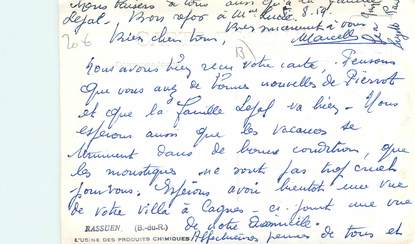 Nous baisers à tous ainsi qu'à la famille
Lejal. Bons repos à Mr
Bien sincèrement à vous
Bien chers tous, Marcelle
20 F
B)
Nous avons bien reçu votre carte. Pensons
que vous avez de bonnes nouvelles de Pierrot
et que la famille Lejal va bien. Nous
espérons aussi que les vacances se
terminent dans de bonnes conditions, que
les moustiques ne sont pas trop cruels
pour vous. Espérons avoir bientôt une vue
de votre villa à Cagnes. ci-joint une vue
RASSUEN. (B.-du-R.) de notre Domicile.
L'USINE DES PRODUITS CHIMIQUES Affectueuses pensées de tous et